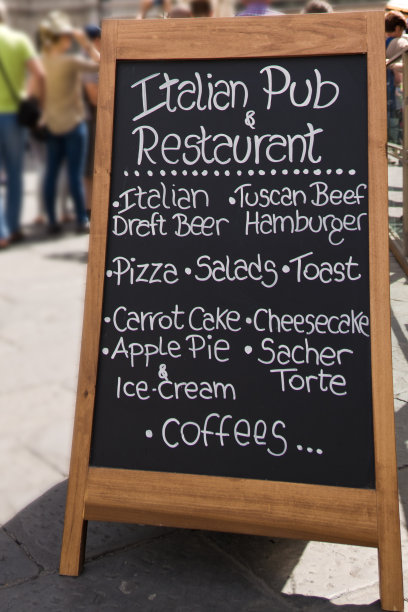 Italian Pub
&
Restaurant
•Italian •Tuscan Beef
Draft Beer Hamburger
•Pizza •Salads •Toast
•Carrot Cake •Cheesecake
•Apple Pie •Sacher
& Torte
Ice-Cream
•coffees...